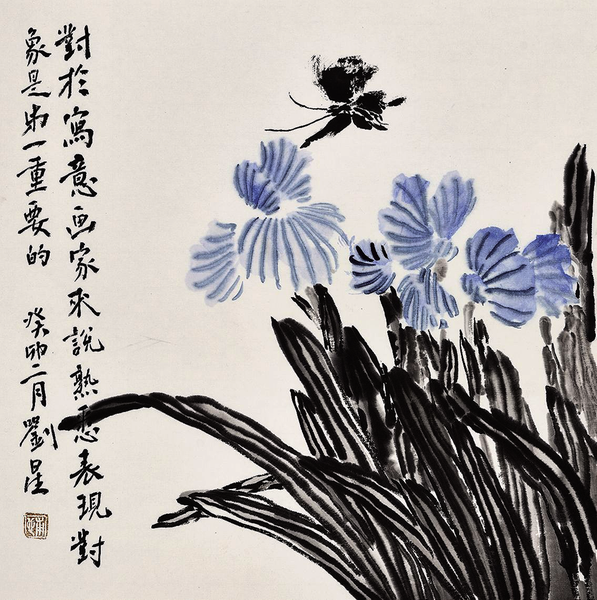 對於寫意画家來說熟悉表現對
象是第一重要的
癸卯二月劉星